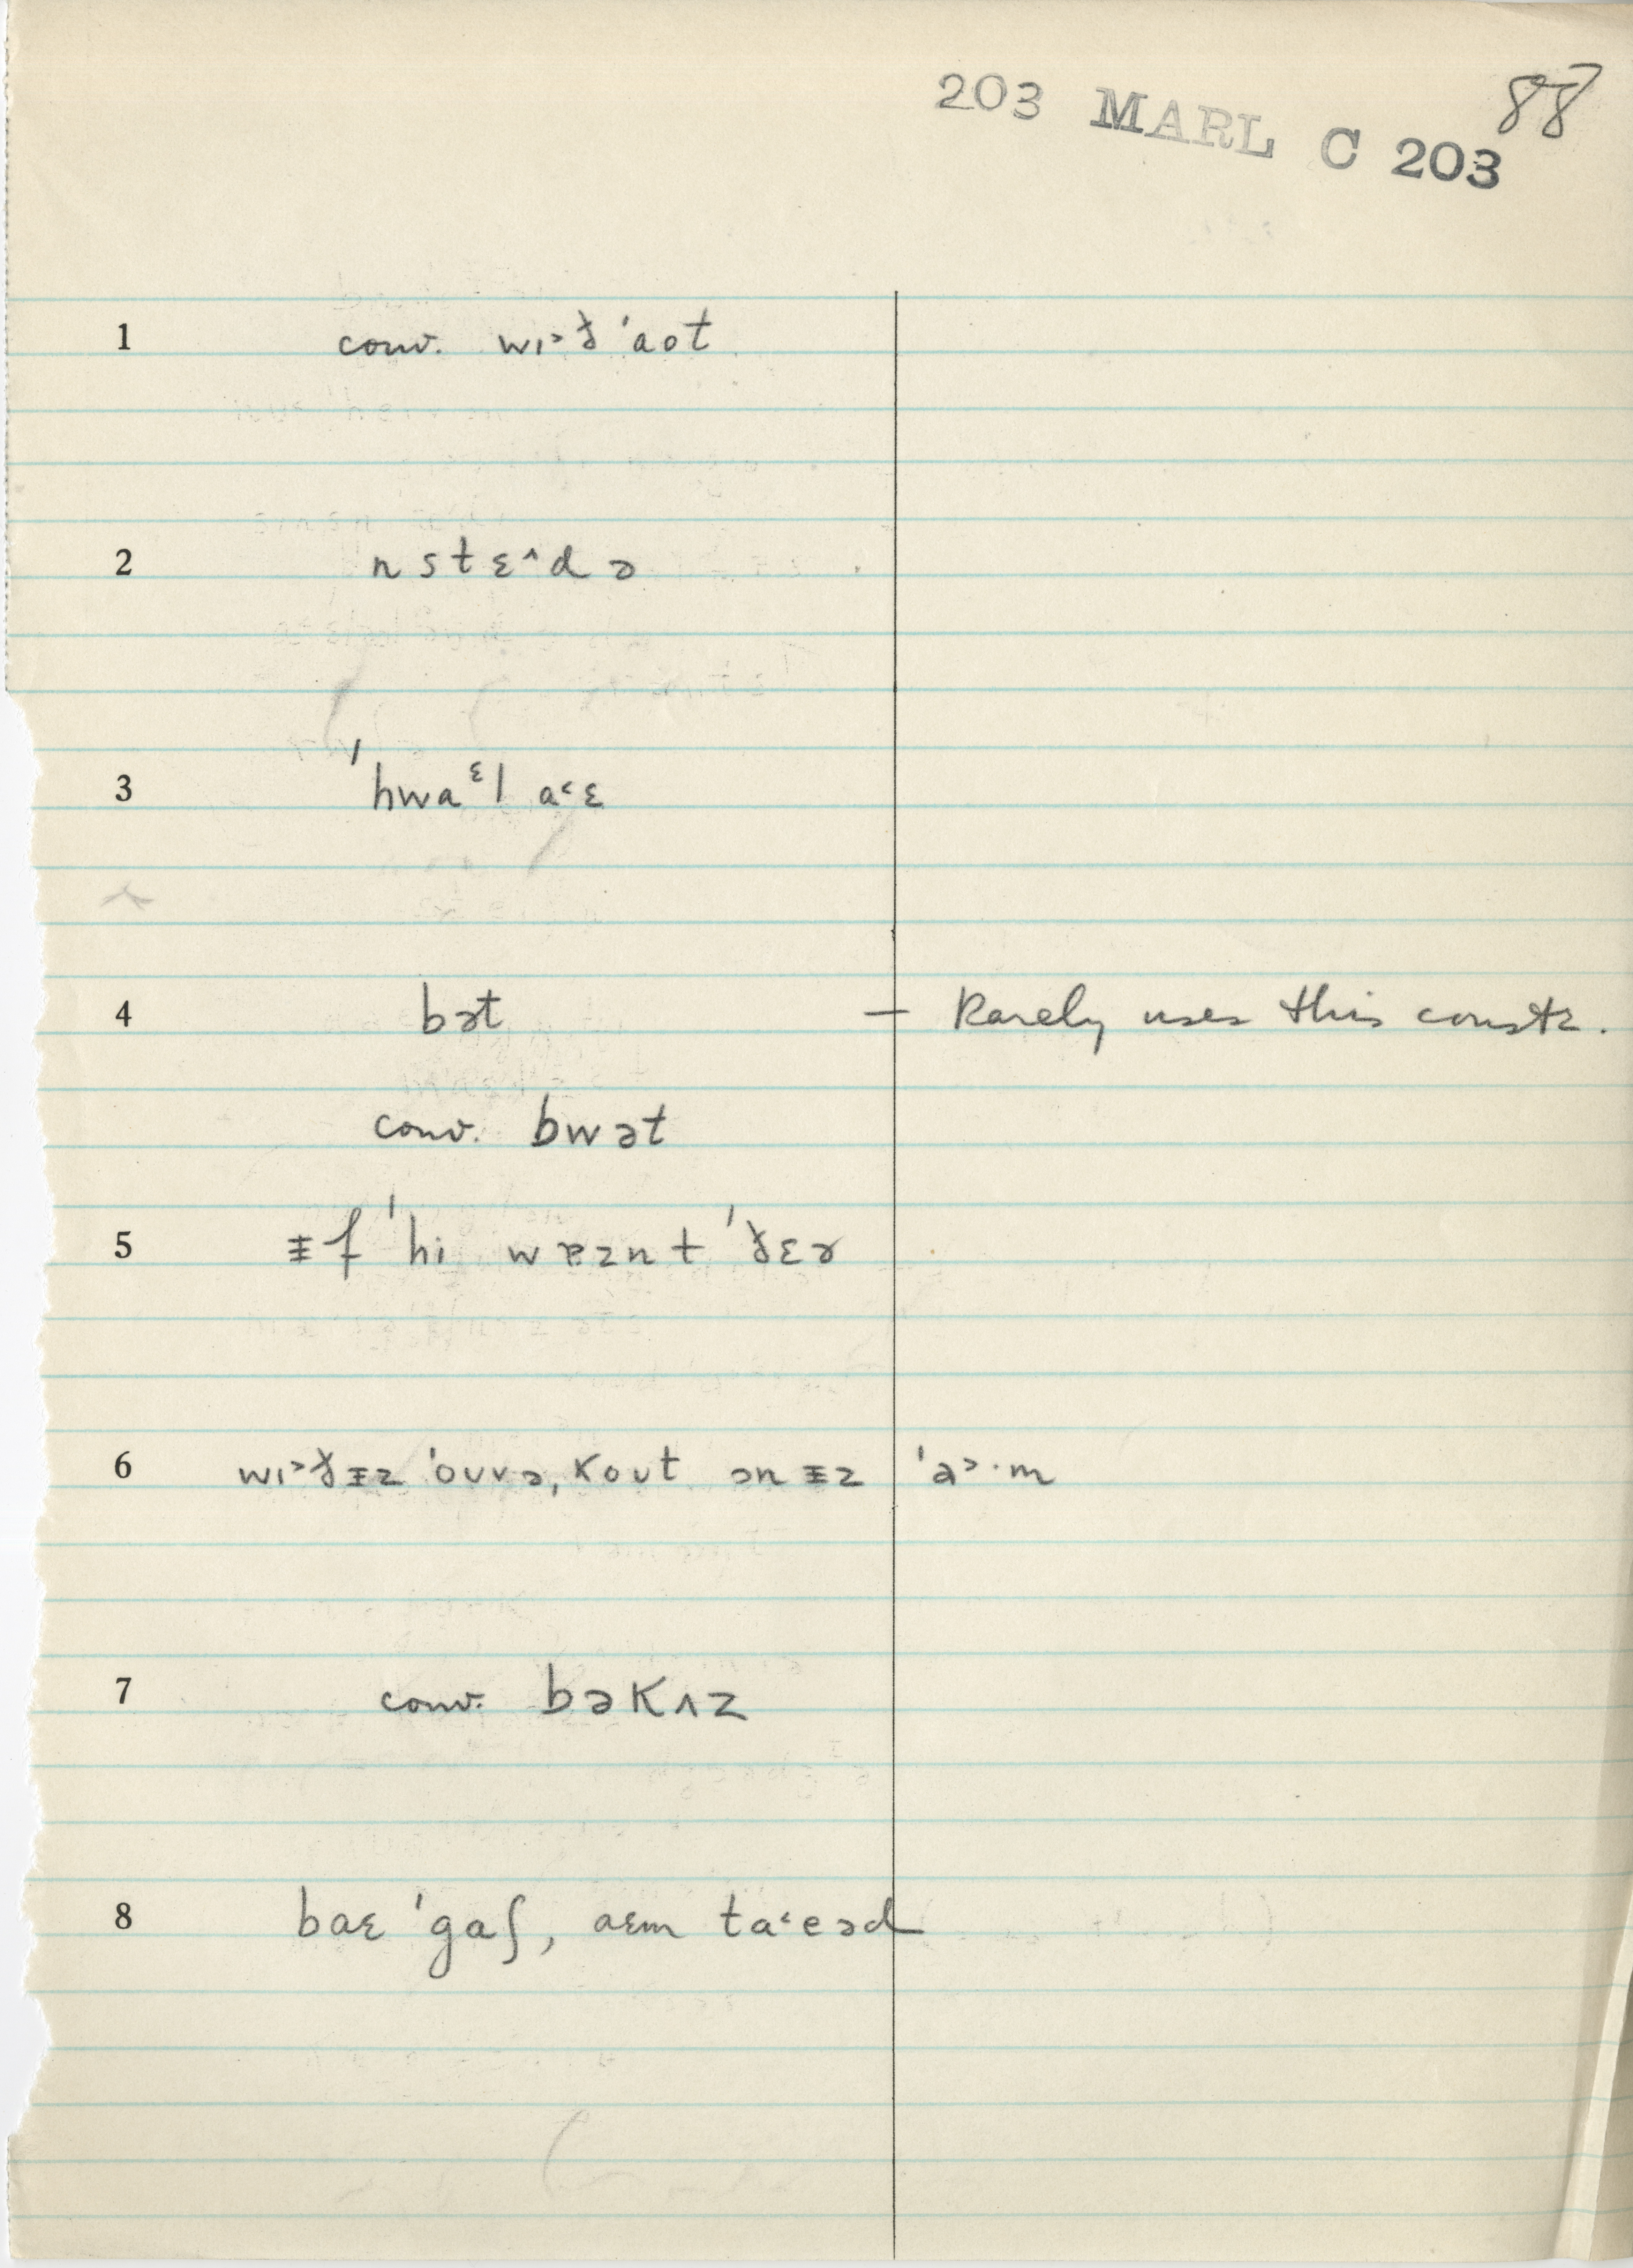 88
203 MARL C 203
1 conv. wɪ˃ð ˈaot
2 n s t ɛ˄d ə
3 ˈhwaᵋl a˂ɛ
4 bət — Rarely uses this constr.
conv. bwət
5 ɪf ˈhi wɐznt ˈðɛɚ
6 wɪ˃ðɨz ˈouvə, kout ən ɨz ˈa˃·m
7 conv. bəkʌz
8 baɛ ˈgaʃ, aɛm ta˂eəd